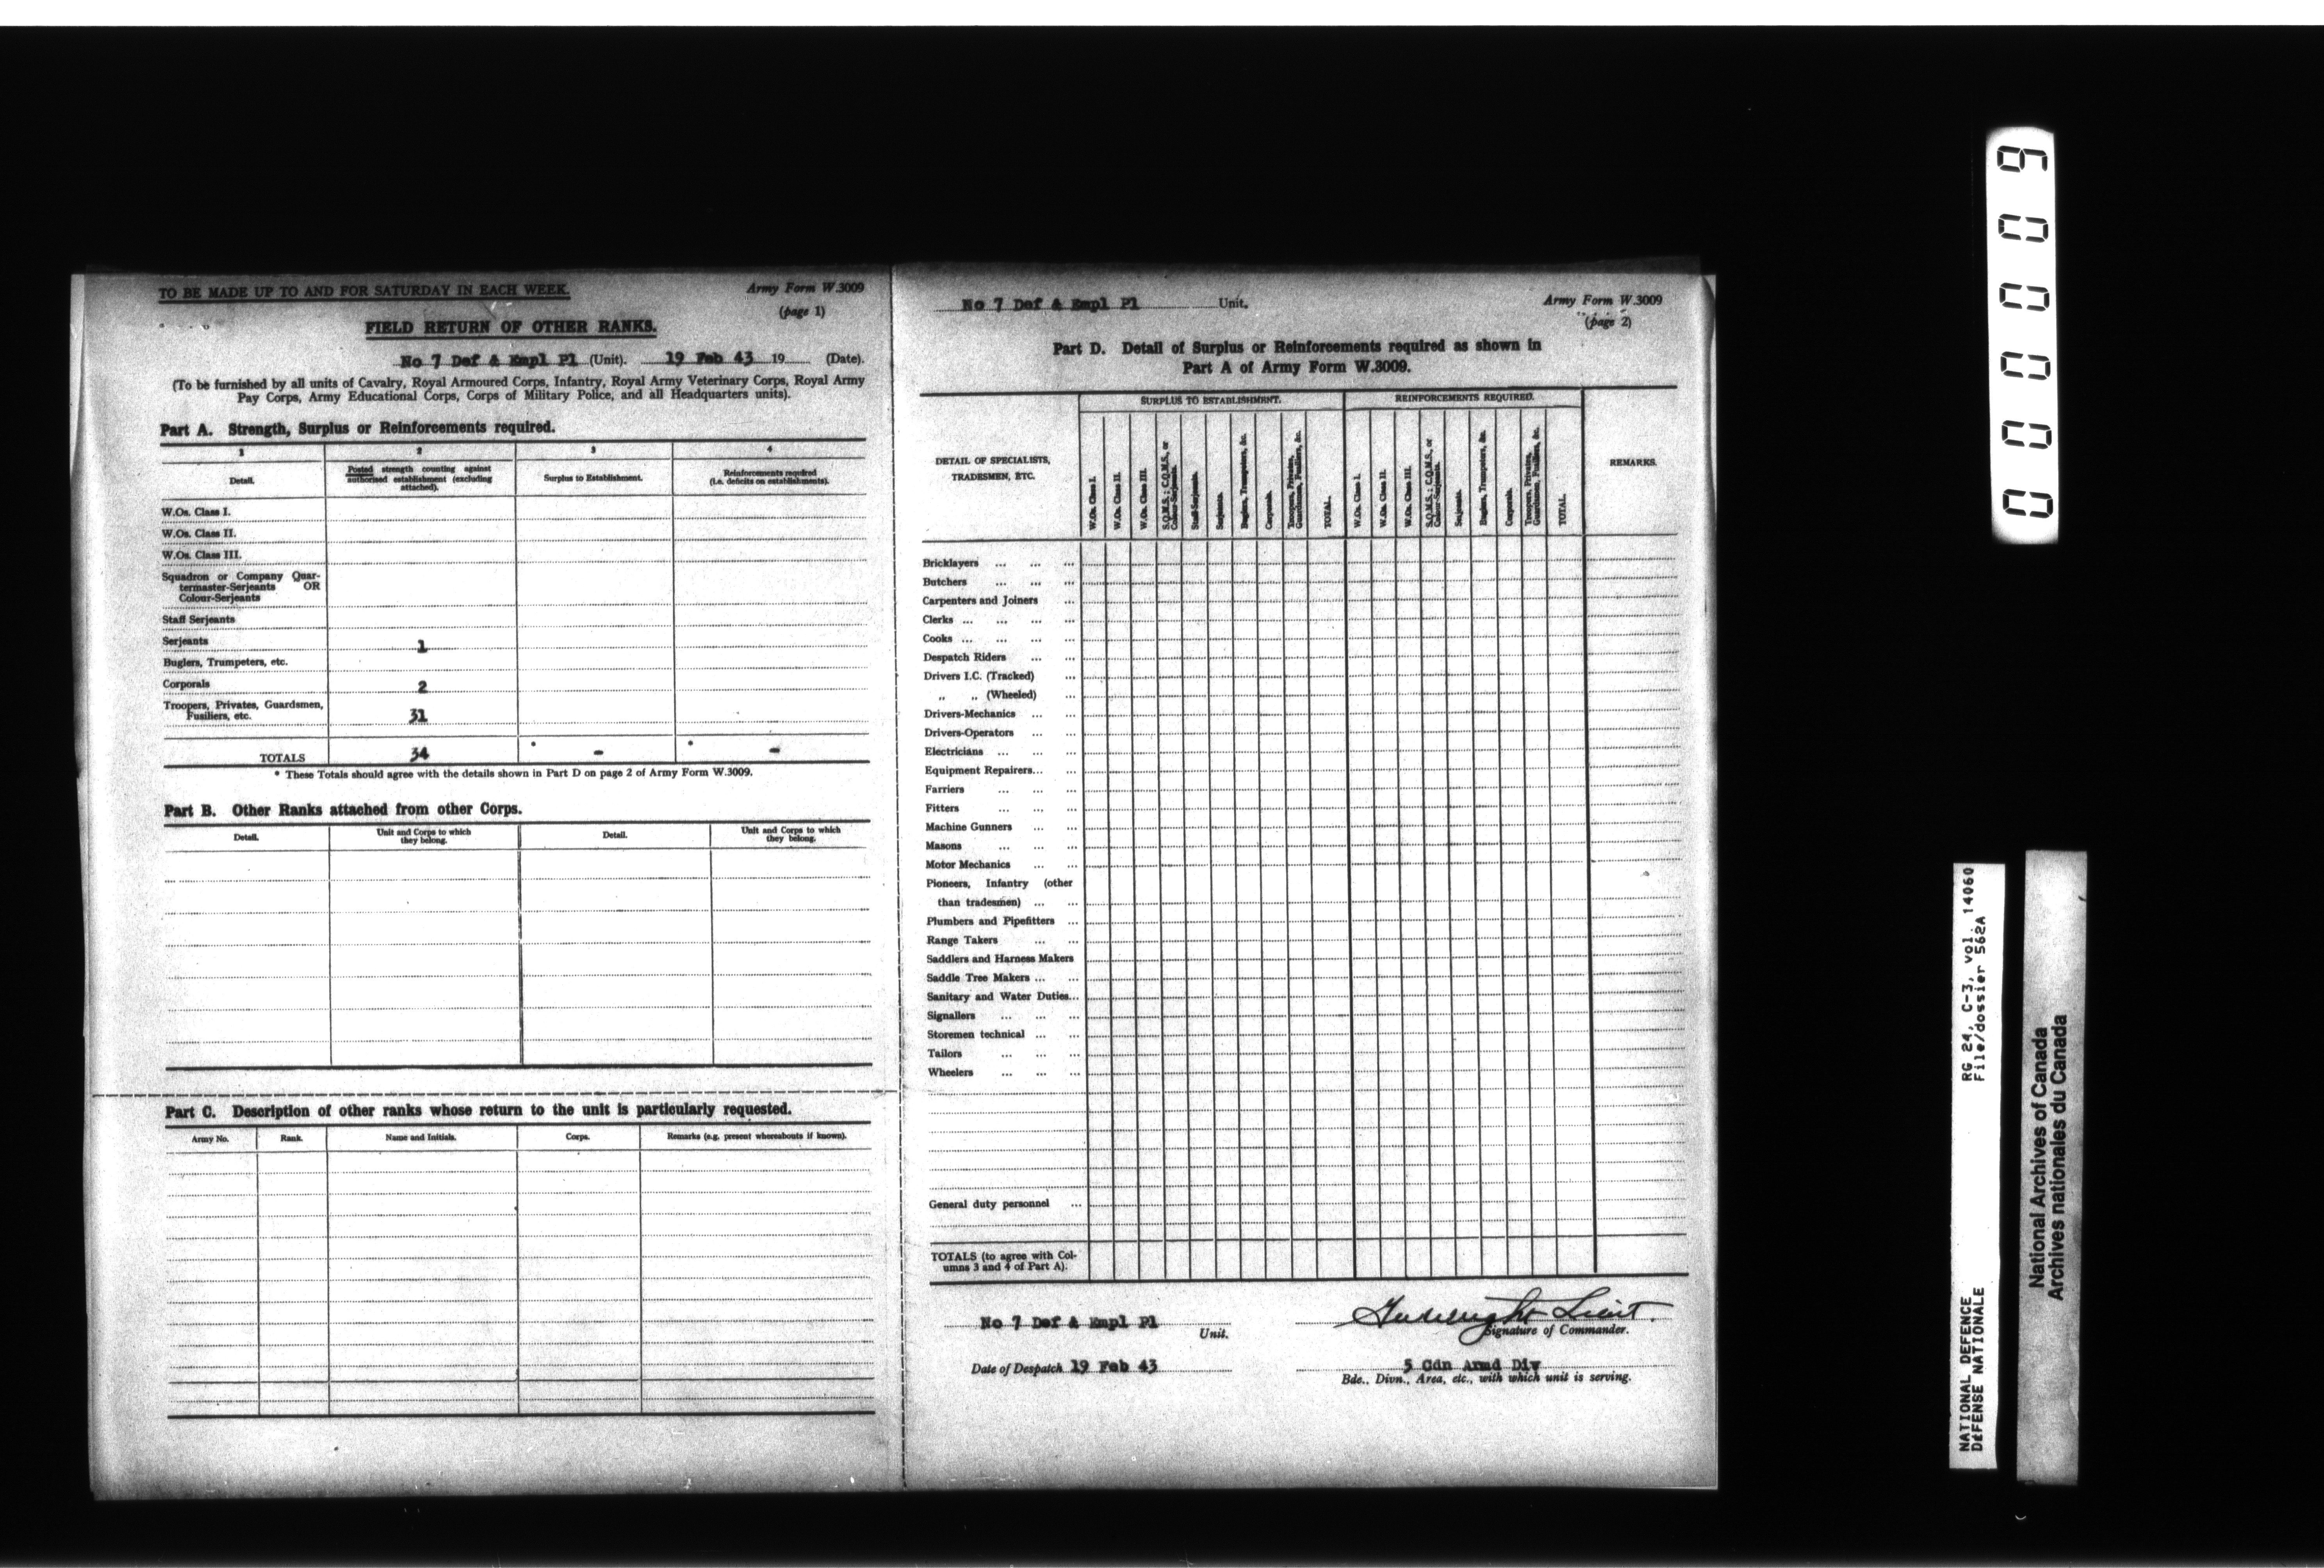 TO BE MADE UP TO AND FOR SATURDAY IN EACH WEEK.
Army Form W.3009
(page 1)
FIELD RETURN OF OTHER RANKS.
No 7 Def & Empl Pl (Unit). 19 Feb 43 19 (Date).
(To be furnished by all units of Cavalry, Royal Armoured Corps, Infantry, Royal Army Veterinary Corps, Royal Army
Pay Corps, Army Educational Corps, Corps of Military Police, and all Headquarters units).
Part A. Strength, Surplus or Reinforcements required.
1 2 3 4
Detail.
Posted strength counting against
authorised establishment (excluding
attached).
Surplus to Establishment.
Reinforcements required
(i.e. deficits on establishments).
W.Os. Class I.
W.Os. Class II.
W.Os. Class III.
Squadron or Company Quar-
termaster-Serjeants OR
Colour-Serjeants
Staff Serjeants
Serjeants 1
Buglers, Trumpeters, etc.
Corporals 2
Troopers, Privates, Guardsmen,
Fusiliers, etc. 31
TOTALS 34 * - * -
* These Totals should agree with the details shown in Part D on page 2 of Army Form W.3009.
Part B. Other Ranks attached from other Corps.
Detail.
Unit and Corps to which
they belong.
Detail.
Unit and Corps to which
they belong.
Part C. Description of other ranks whose return to the unit is particularly requested.
Army No. Rank. Name and Initials. Corps. Remarks (e.g. present whereabouts if known).
No 7 Def & Empl Pl Unit.
Army Form W.3009
(page 2)
Part D. Detail of Surplus or Reinforcements required as shown in
Part A of Army Form W.3009.
DETAIL OF SPECIALISTS,
TRADESMEN, ETC.
SURPLUS TO ESTABLISHMENT.
W.Os. Class I.
W.Os. Class II.
W.Os. Class III.
S.Q.M.S.; C.Q.M.S., or
Colour-Serjeants.
Staff-Serjeants.
Serjeants.
Buglers, Trumpeters, &c.
Corporals.
Troopers, Privates,
Guardsmen, Fusiliers, &c.
TOTAL.
REINFORCEMENTS REQUIRED.
W.Os. Class I.
W.Os. Class II.
W.Os. Class III.
S.Q.M.S.; C.Q.M.S., or
Colour-Serjeants.
Serjeants.
Buglers, Trumpeters, &c.
Corporals.
Troopers, Privates,
Guardsmen, Fusiliers, &c.
TOTAL.
REMARKS.
Bricklayers ... ... ...
Butchers ... ... ...
Carpenters and Joiners ...
Clerks ... ... ... ...
Cooks ... ... ... ...
Despatch Riders ... ...
Drivers I.C. (Tracked) ...
„ „ (Wheeled) ...
Drivers-Mechanics ... ...
Drivers-Operators ... ...
Electricians ... ... ...
Equipment Repairers... ...
Farriers ... ... ...
Fitters ... ... ...
Machine Gunners ... ...
Masons ... ... ...
Motor Mechanics ... ...
Pioneers, Infantry (other
than tradesmen) ... ...
Plumbers and Pipefitters ...
Range Takers ... ...
Saddlers and Harness Makers
Saddle Tree Makers ... ...
Sanitary and Water Duties...
Signallers ... ... ...
Storemen technical ... ...
Tailors ... ... ...
Wheelers ... ... ...
General duty personnel ...
TOTALS (to agree with Col-
umns 3 and 4 of Part A).
No 7 Def & Empl Pl
Unit.
Lieut.
Signature of Commander.
Date of Despatch 19 Feb 43
5 Cdn Armd Div
Bde., Divn., Area, etc., with which unit is serving.
00009
RG 24, C-3, vol. 14060
File/dossier 562A
NATIONAL DEFENCE
DÉFENSE NATIONALE
National Archives of Canada
Archives nationales du Canada